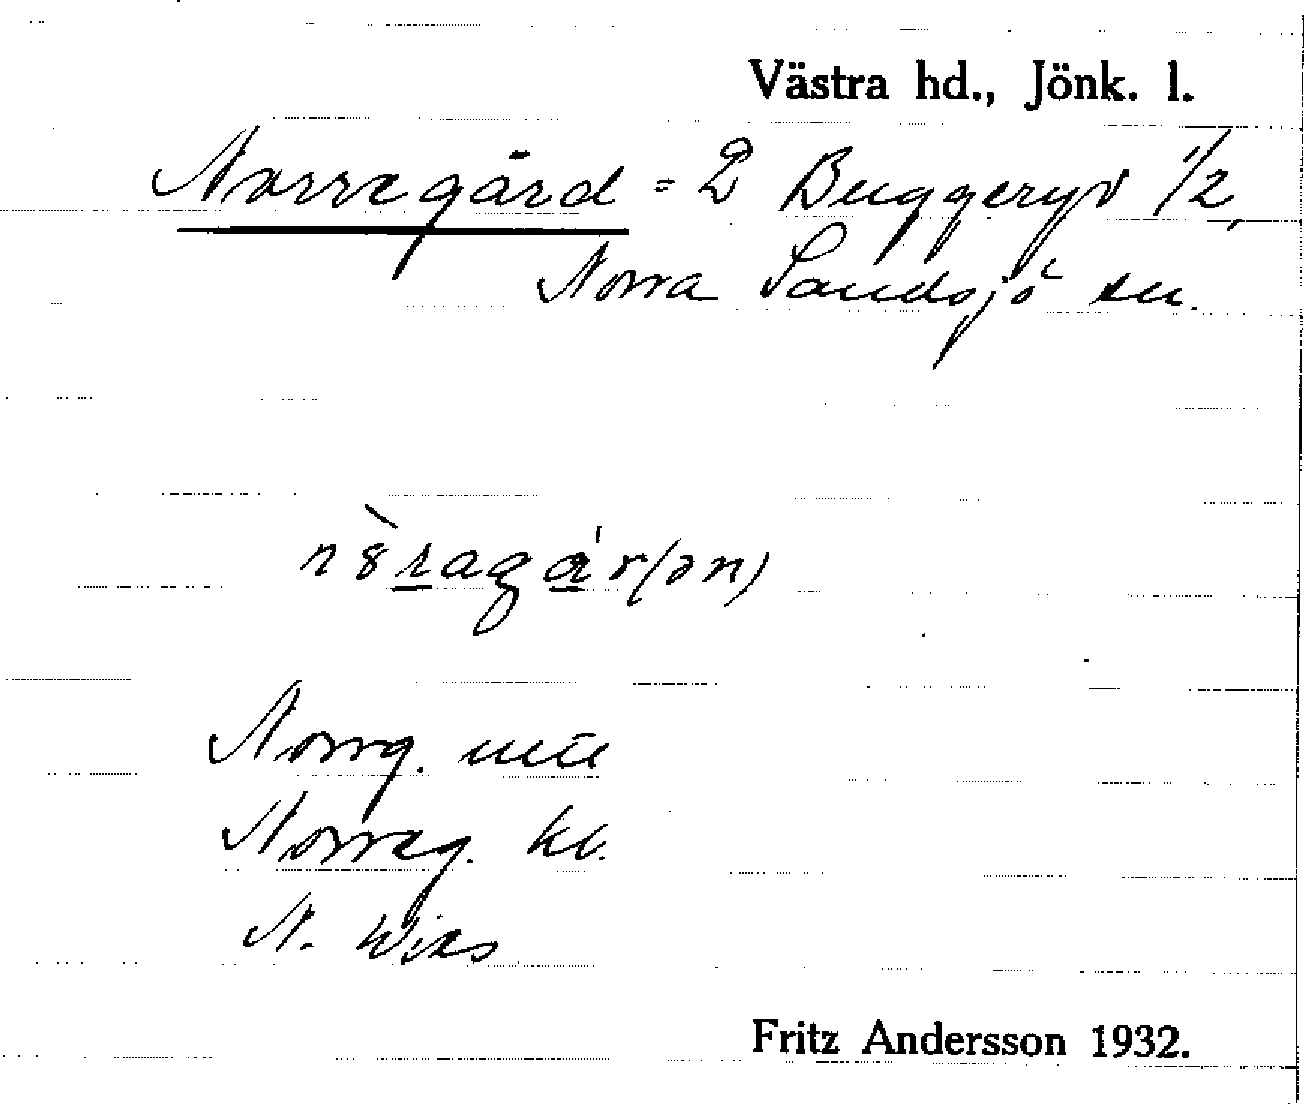 Västra hd., Jönk. l.
Norregård = 2 Buggeryd 1/2,
Norra Sandsjö sn.
n8ragár(ən)
Norrg.
Norreg. kl.
N. Wies
Fritz Andersson 1932.